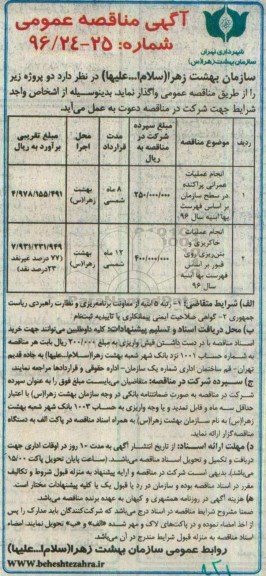 شهرداری تهران
سازمان بهشت زهرا(س)
آگهی مناقصه عمومی
شماره: ۲۵-۹۶/۲۴
سازمان بهشت زهرا(سلام‌ا...علیها) در نظر دارد دو پروژه زیر
را از طریق مناقصه عمومی واگذار نماید. بدینوسیله از اشخاص واجد
شرایط جهت شرکت در مناقصه دعوت به عمل می‌آید.
ردیف
موضوع مناقصه
مبلغ سپرده
شرکت در
مناقصه به
ریال
مدت
قرارداد
محل
اجرا
مبلغ تقریبی
برآورد به ریال
۱
انجام عملیات
عمرانی پراکنده
در سطح سازمان
بر اساس فهرست
بها ابنیه سال ۹۶
۲۵۰/۰۰۰/۰۰۰
۸ ماه
شمسی
بهشت
زهرا(س)
۴/۹۷۸/۱۵۵/۴۹۱
۲
انجام عملیات
خاکریزی و
بتن‌ریزی روی
قبور بر اساس
فهرست بها ابنیه
سال ۹۶
۴۰۰/۰۰۰/۰۰۰
۱۲ ماه
شمسی
بهشت
زهرا(س)
۷/۹۳۱/۲۳۱/۹۴۹
(۷۷ درصد غیرنقد
۲۳درصد نقد)
الف) شرایط متقاضی: ۱- رتبه ۵ ابنیه از معاونت برنامه‌ریزی و نظارت راهبردی ریاست
جمهوری ۲- گواهی صلاحیت ایمنی پیمانکاری یا تاییدیه ثبت‌نام
ب) محل دریافت اسناد و تسلیم پیشنهادات: کلیه داوطلبین می‌توانند جهت خرید
اسناد مناقصه با در دست داشتن فیش واریزی به مبلغ ۲۰۰/۰۰۰ ریال بابت هر مناقصه
به شماره حساب ۱۰۰۱ نزد بانک شهر شعبه بهشت زهرا(سلام‌ا...علیها) به جاده قدیم
تهران- قم ساختمان اداری شماره یک سازمان- اداره حقوقی و قراردادها مراجعه نمایند.
ج) سپرده شرکت در مناقصه: متقاضیان می‌بایست مبلغ فوق را به عنوان سپرده
شرکت در مناقصه به صورت ضمانتنامه بانکی در وجه سازمان بهشت زهرا(س) با اعتبار
حداقل سه ماه و قابل تمدید و یا وجه واریزی به حساب ۱۰۰۳ بانک شهر شعبه بهشت
زهرا(س) به نام سازمان بهشت زهرا(س) به همراه اسناد مناقصه در پاکت الف به دستگاه
مناقصه‌گزار ارائه نماید.
د) مهلت ارائه اسناد: از تاریخ انتشار آگهی به مدت ۱۰ روز در اوقات اداری جهت
دریافت و تکمیل و تحویل اسناد مناقصه می‌باشد. (ساعت پایان تحویل پاکت ۱۵/۰۰
می‌باشد) بدیهی است شرکت در مناقصه و ارایه پیشنهاد به منزله قبول شروط و تکالیف
مقرر در اسناد مناقصه بوده و سازمان در رد یا قبول یک یا کلیه پیشنهادات مختار است.
ه) هزینه آگهی در روزنامه همشهری و کیهان به عهده برنده مناقصه می‌باشد.
ضمنا مشروح شرایط مناقصه در اسناد درج می‌باشد که شرکت‌کنندگان باید مدارک را پس
از اخذ امضاء نموده و در پاکت‌های لاک و مهر شده «الف» و «ب» تحویل نمایند. امضاء
اسناد مناقصه به منزله قبول شرایط مندرج در آن می‌باشد.
روابط عمومی سازمان بهشت زهرا(سلام‌ا...علیها)
www.beheshtezahra.ir